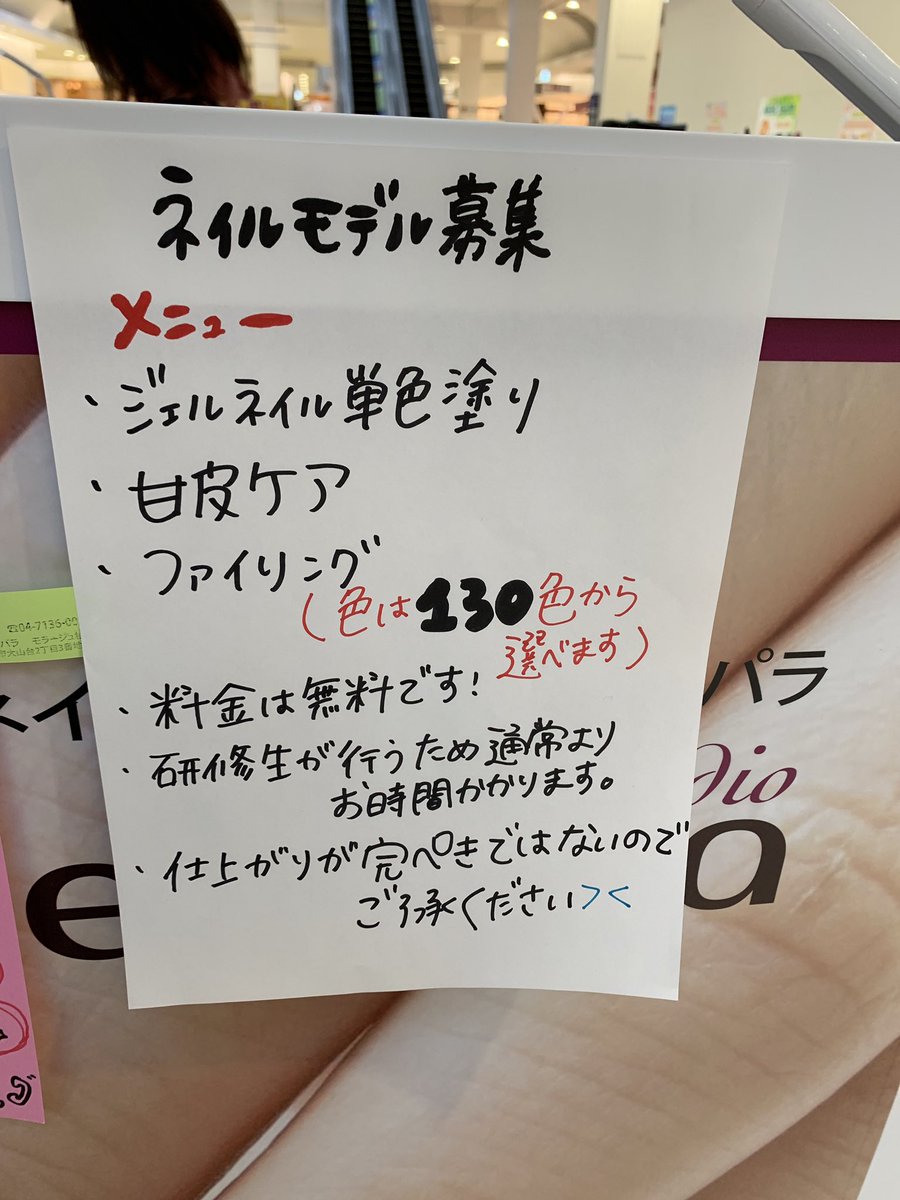 ネイルモデル募集
メニュー
・ジェルネイル単色塗り
・甘皮ケア
・ファイリング
(色は130色から
選べます)
・料金は無料です!
・研修生が行うため通常より
お時間かかります。
・仕上がりが完ぺきではないので
ご了承ください><
☎04-7136-00
パラ モラージュ
大山台2丁目3番地
ネイ
パラ
dio
e
a